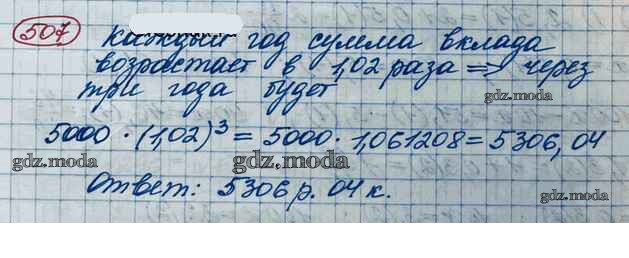 507 Каждый год сумма вклада
возрастает в 1,02 раза => через
три года будет
gdz.moda
5000 · (1,02)³ = 5000 · 1,061208 = 5306,04
gdz.moda gdz.moda
Ответ: 5306 р. 04 к.
gdz.moda